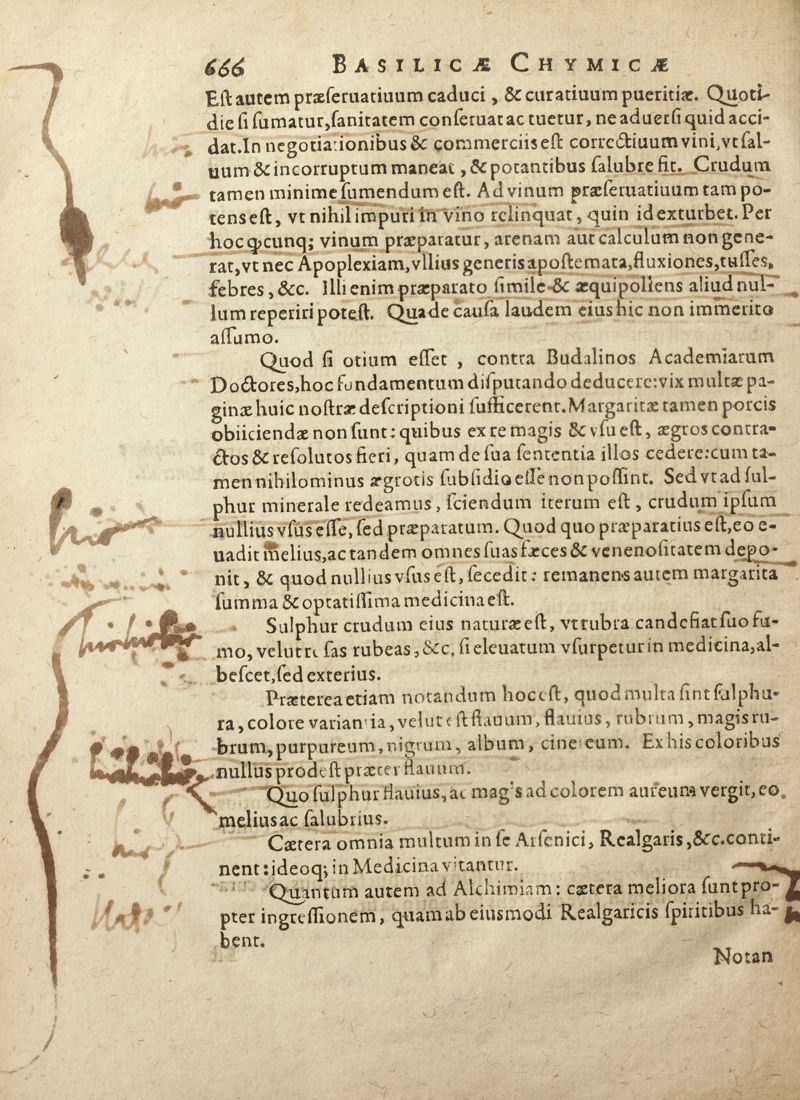 666 BASILICÆ CHYMICÆ
Eſt autem præſeruatiuum caduci, & curatiuum pueritiæ. Quoti-
die ſi ſumatur, ſanitatem conſeruat ac tuetur, ne aduerſi quid acci-
dat. In negotiationibus & commerciis eſt correctiuum vini, vt ſal-
uum & incorruptum maneat, & potantibus ſalubre fit. Crudum
tamen minime ſumendum eſt. Ad vinum præſeruatiuum tam po-
tens eſt, vt nihil impuri in vino relinquat, quin id exturbet. Per
hoc qꝫcunq; vinum præparatur, arenam aut calculum non gene-
rat, vt nec Apoplexiam, vllius generis apoſtemata, fluxiones, tuſſes,
febres, &c. Illi enim præparato ſimile & æquipollens aliud nul-
lum reperiri poteſt. Qua de cauſa laudem eius hic non immerito
aſſumo.
Quod ſi otium eſſet, contra Budalinos Academiarum
Doctores, hoc fundamentum diſputando deducere: vix multæ pa-
ginæ huic noſtræ deſcriptioni ſufficerent. Margaritæ tamen porcis
obiiciendæ non ſunt: quibus ex re magis & vſu eſt, ægros contra-
ctos & reſolutos fieri, quam de ſua ſententia illos cedere: cum ta-
men nihilominus ægrotis ſubſidio eſſe non poſſint. Sed vt ad ſul-
phur minerale redeamus, ſciendum iterum eſt, crudum ipſum
nullius vſus eſſe, ſed præparatum. Quod quo præparatius eſt, eo e-
uadit melius, ac tandem omnes ſuas fæces & venenoſitatem depo-
nit, & quod nullius vſus eſt, ſecedit: remanens autem margarita
ſumma & optatiſſima medicina eſt.
Sulphur crudum eius naturæ eſt, vt rubra candefiat ſuo fu-
mo, velut roſas rubeas, &c. ſi eleuatum vſurpetur in medicina, al-
beſcet, ſed exterius.
Præterea etiam notandum hoc eſt, quod multa ſint ſulphu-
ra, colore variantia, velut eſt flauum, flauius, rubrum, magis ru-
brum, purpureum, nigrum, album, cinereum. Ex his coloribus
nullus prodeſt præter flauum.
Quo ſulphur flauius, ac magis ad colorem aureum vergit, eo
melius ac ſalubrius.
Cætera omnia multum in ſe Arſenici, Realgaris, &c. conti-
nent: ideoq; in Medicina vitantur.
Quantum autem ad Alchimiam: cætera meliora ſunt pro-
pter ingreſſionem, quam ab eiusmodi Realgaricis ſpiritibus ha-
bent.
Notan